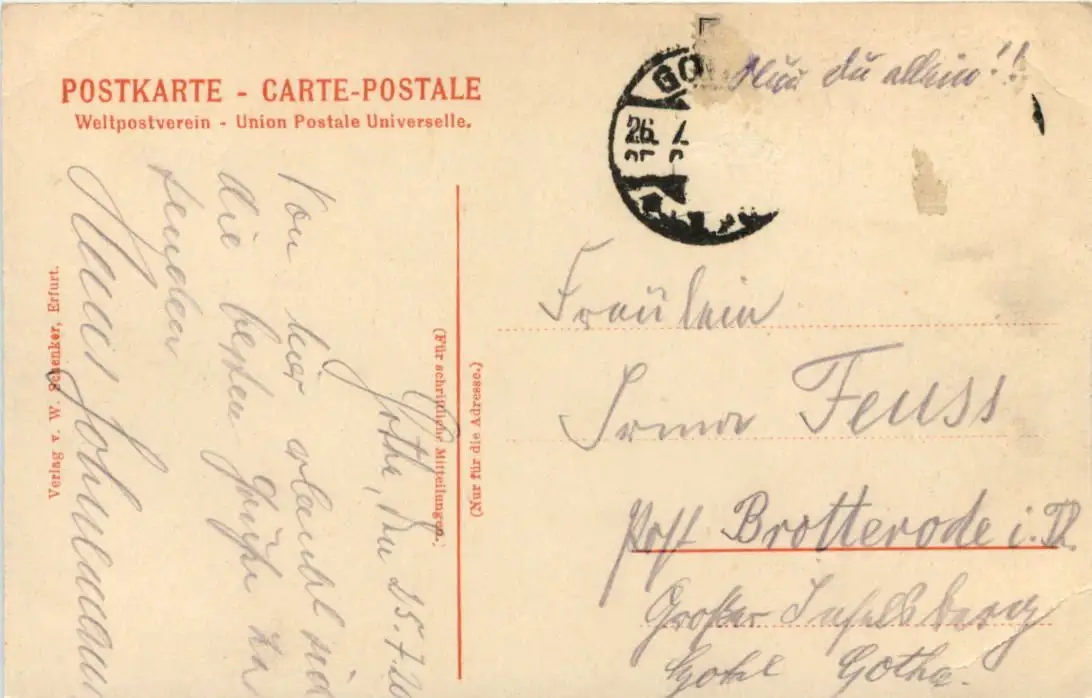 POSTKARTE - CARTE-POSTALE
Weltpostverein - Union Postale Universelle.
Nur du allein!!
GO
26. 7.
Gotha, den 25.7.20
Von hier erlaubt sich
die besten Grüße zu
senden
Verlag v. W. Schenker, Erfurt.
(Für schriftliche Mitteilungen.)
(Nur für die Adresse.)
Fräulein
Irma Feuss
Post Brotterode i. Th.
Großer Inselsberg
Gotha.